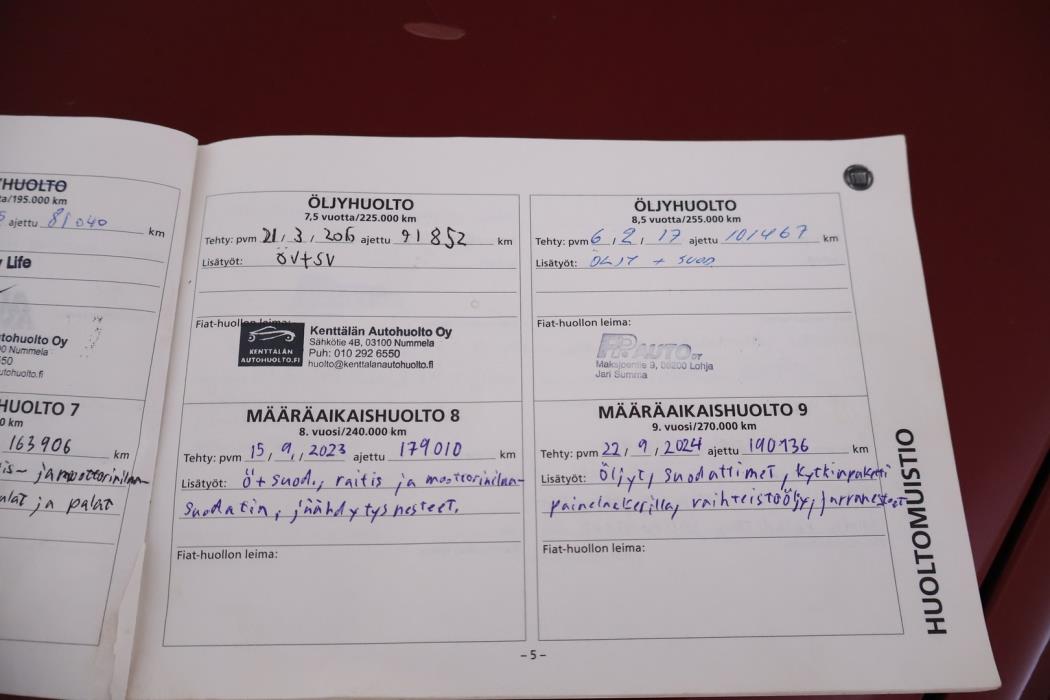 HUOLTO
ta/195.000 km
5 ajettu 81040 km
Life
tohuolto Oy
00 Nummela
50
utohuolto.fi
HUOLTO 7
0 km
163906 km
is- ja moottorinilman-
ja palat
ÖLJYHUOLTO
7,5 vuotta/225.000 km
Tehty: pvm 21, 3, 2016 ajettu 91852 km
Lisätyöt: ÖV+SV
Fiat-huollon leima:
KENTTÄLÄN
AUTOHUOLTO.FI
Kenttälän Autohuolto Oy
Sähkötie 4B, 03100 Nummela
Puh: 010 292 6550
huolto@kenttalanautohuolto.fi
MÄÄRÄAIKAISHUOLTO 8
8. vuosi/240.000 km
Tehty: pvm 15, 9, 2023 ajettu 179010 km
Lisätyöt: Ö+ suod., raitis ja moottorinilman-
suodatin, jäähdytysnesteet.
Fiat-huollon leima:
ÖLJYHUOLTO
8,5 vuotta/255.000 km
Tehty: pvm 6, 2, 17 ajettu 101467 km
Lisätyöt: ÖLJY + SUOD
Fiat-huollon leima:
AUTO OY
Maksjoentie 9, 08200 Lohja
Jari Summa
MÄÄRÄAIKAISHUOLTO 9
9. vuosi/270.000 km
Tehty: pvm 22, 9, 2024 ajettu 190136 km
Lisätyöt: Öljyt, suodattimet, kytkinpaketti
painelaakerilla, vaihteistoöljy, jarrunesteet
Fiat-huollon leima:
HUOLTOMUISTIO
– 5 –